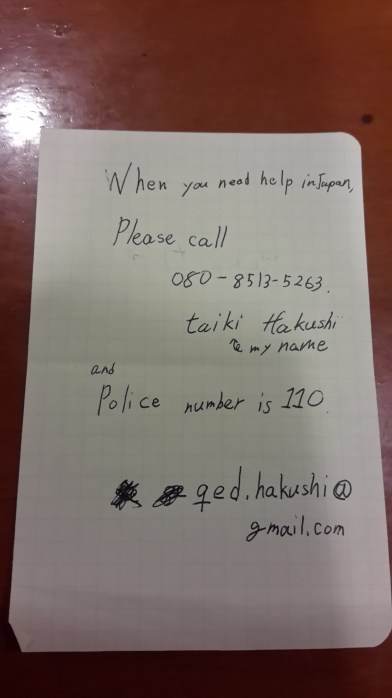 When you need help in Japan,
Please call
080-8513-5263.
taiki Hakushi
my name
and
Police number is 110.
qed.hakushi@
gmail.com